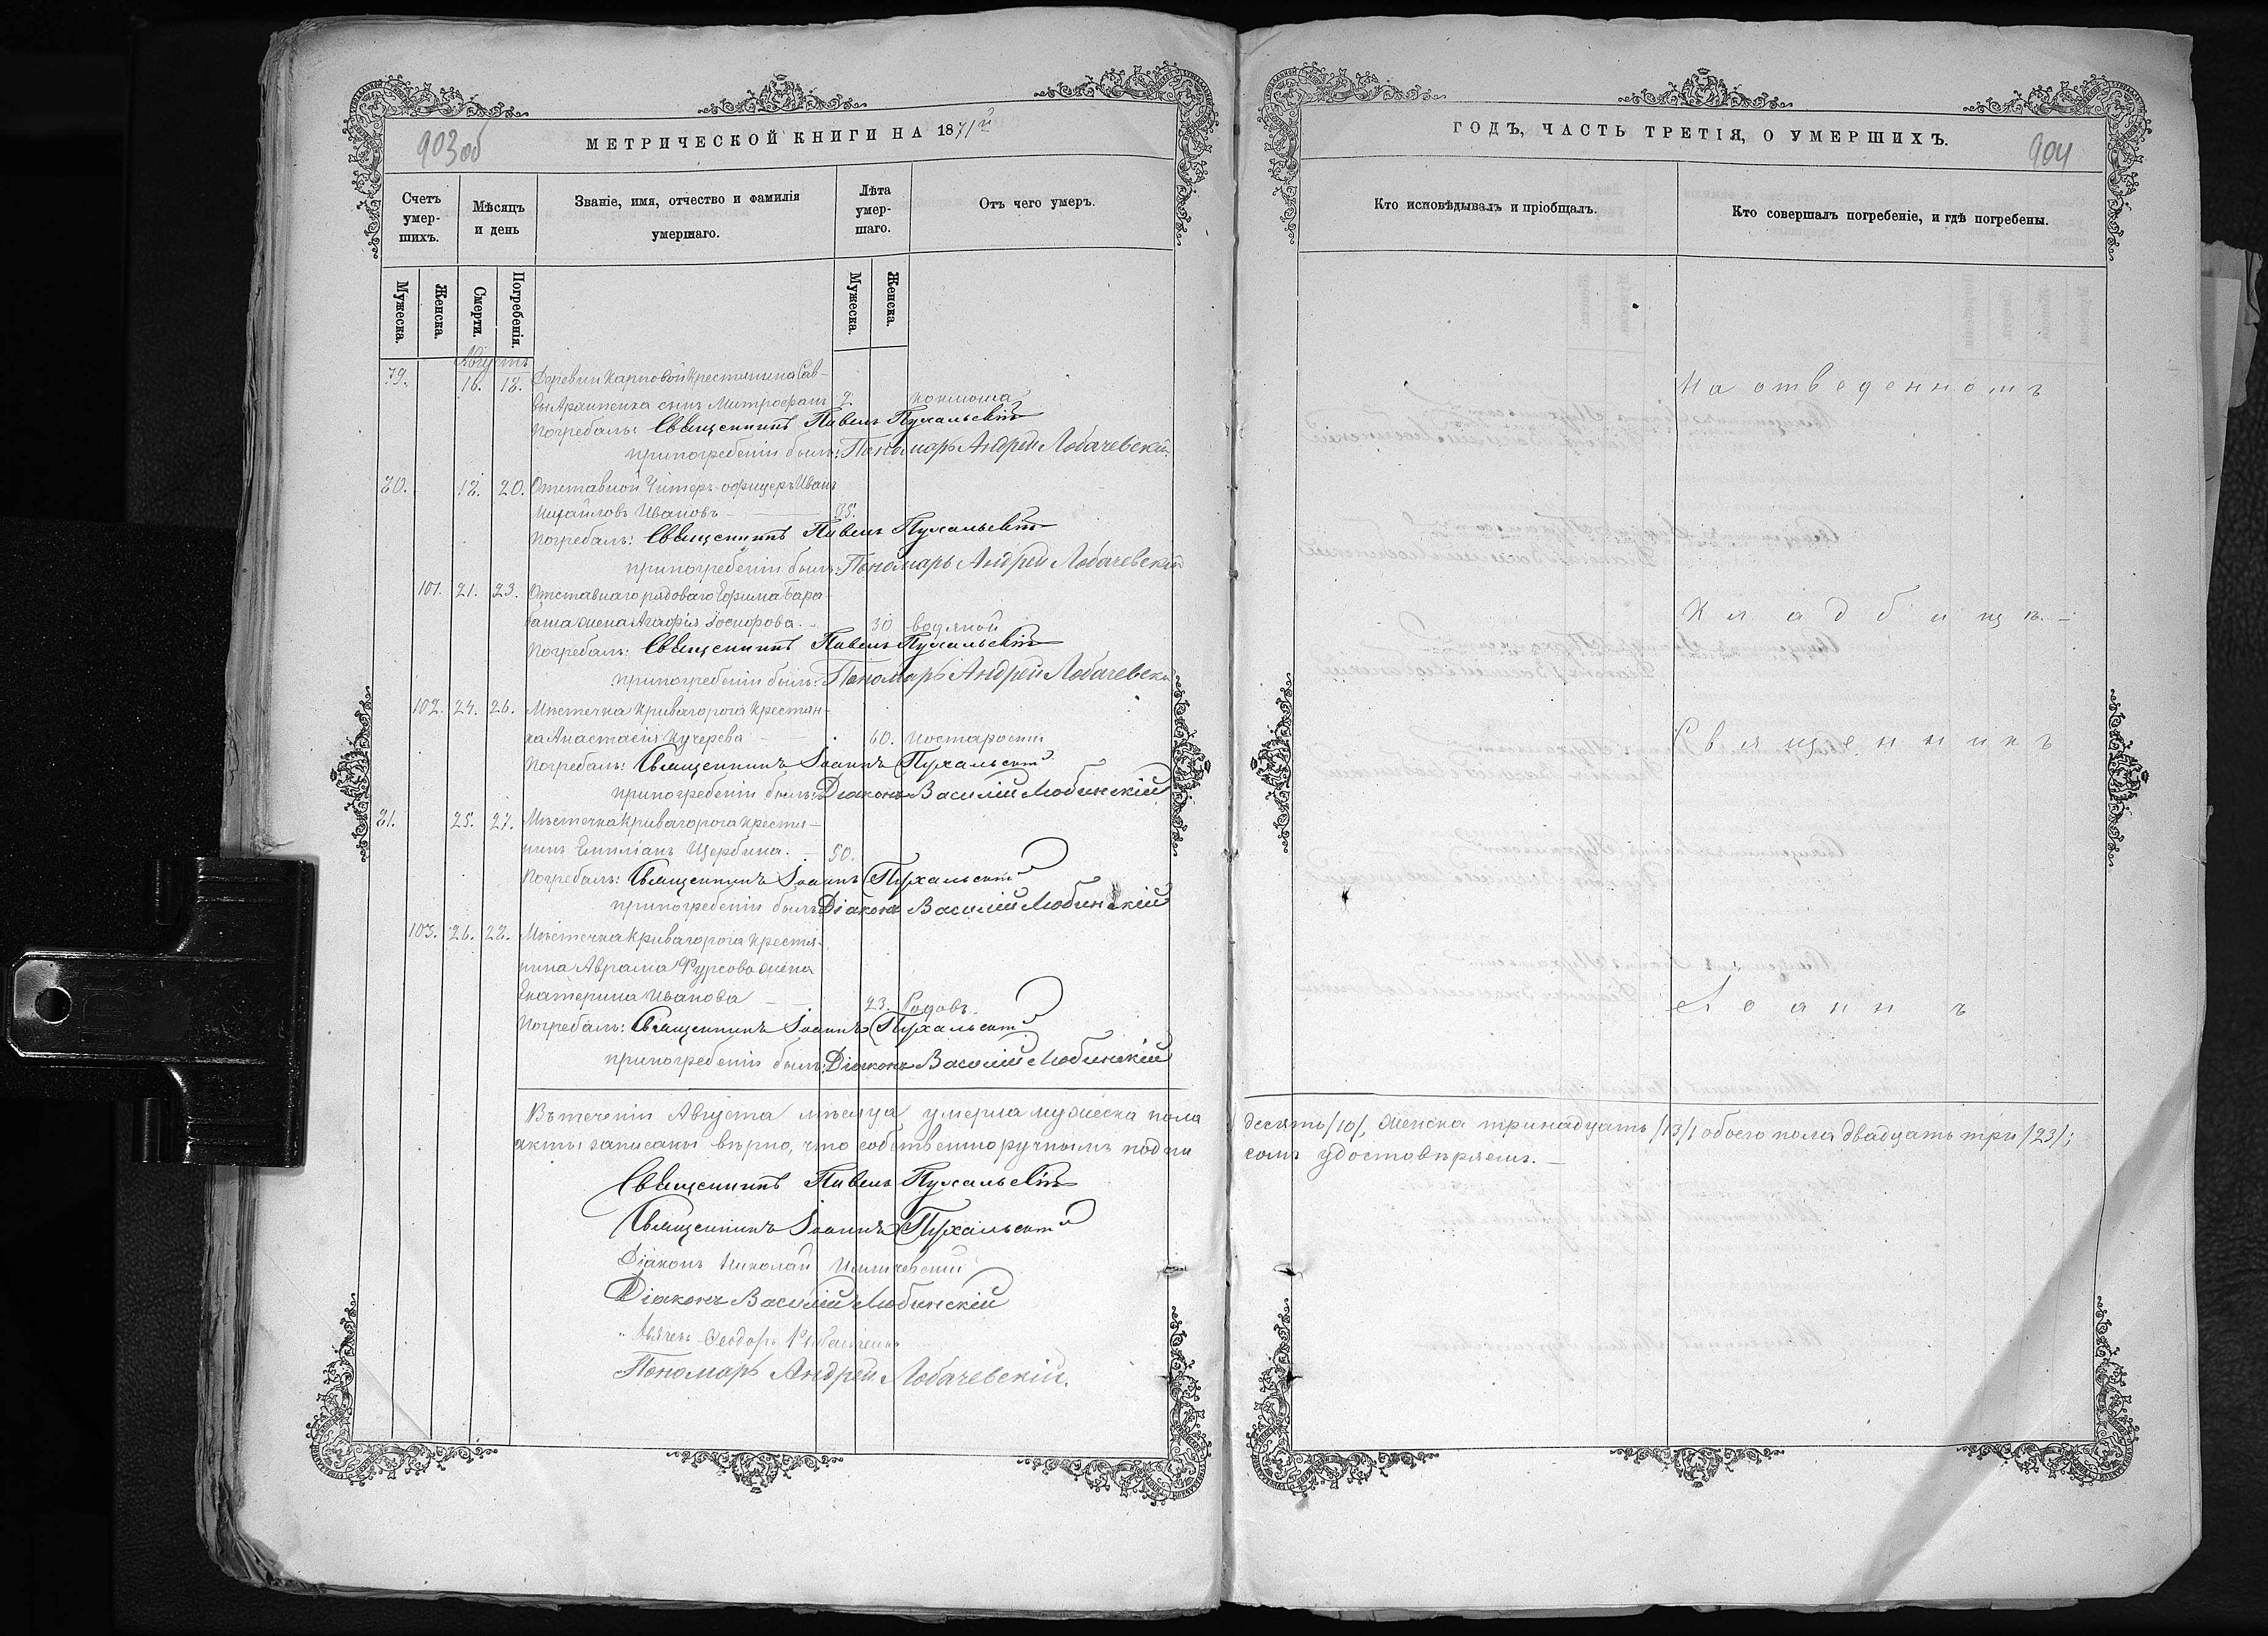 903 об
МЕТРИЧЕСКОЙ КНИГИ НА 1871й
Счетъ умершихъ.
Мѣсяцъ и день
Званіе, имя, отчество и фамилія умершаго.
Лѣта умершаго.
Отъ чего умеръ.
Мужеска.
Женска.
Смерти.
Погребенія.
Мужеска.
Женска.
Августъ
79. 16. 18. Деревни Карповой крестьянина Сав-
вы Архипенка сынъ Митрофанъ 2 коклюша
Погребалъ: Священникъ Павелъ Пухальскій
при погребеніи былъ: Пономарь Андрей Лобачевскій.
80. 18. 20. Отставной Унтеръ-офицеръ Иванъ
Михайловъ Ивановъ 95.
Погребалъ: Священникъ Павелъ Пухальскій
при погребеніи былъ: Пономарь Андрей Лобачевскій
101. 21. 23. Отставнаго рядоваго Ефима Бара-
баша жена Агафія 30 водяной
Погребалъ: Священникъ Павелъ Пухальскій
при погребеніи былъ: Пономарь Андрей Лобачевскій
102. 24. 26. Мѣстечка Кривагорога крестьян-
ка Анастасія Кучерева 60. По старости
Погребалъ: Священникъ Іоаннъ Пухальскій
при погребеніи былъ: Діаконъ Василій Любинскій
81. 25. 27. Мѣстечка Кривагорога крестья-
нинъ Емиліанъ Щербина. 50.
Погребалъ: Священникъ Іоаннъ Пухальскій
при погребеніи былъ Діаконъ Василій Любинскій
103. 26. 28. Мѣстечка Кривагорога крестья-
нина Аврама Фурсова жена
Екатерина Иванова 23. Родовъ.
Погребалъ: Священникъ Іоаннъ Пухальскій
при погребеніи былъ: Діаконъ Василій Любинскій
Въ теченіи Августа мѣсяца умерла мужеска пола
акты записаны вѣрно, что собственноручнымъ подпи
Священникъ Павелъ Пухальскій
Священникъ Іоаннъ Пухальскій
Діаконъ Николай
Діаконъ Василій Любинскій
Ѳеодоръ
Пономарь Андрей Лобачевскій.
ГОДЪ, ЧАСТЬ ТРЕТІЯ, О УМЕРШИХЪ.
904
Кто исповѣдывалъ и пріобщалъ.
Кто совершалъ погребеніе, и гдѣ погребены.
На отведенномъ
Кладбищѣ.
Священникъ
Іоаннъ
десять /10/, женска тринадцать /13/ обоего пола двадцать три /23/;
сомъ удостовѣряемъ.